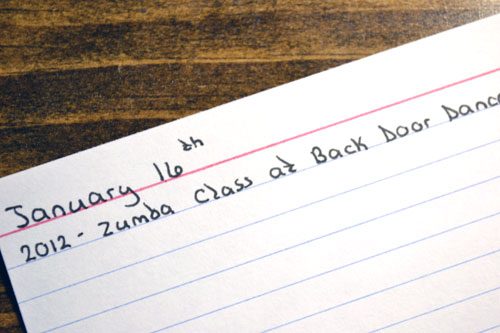 January 16th
2012 - Zumba class at Back Door Dance